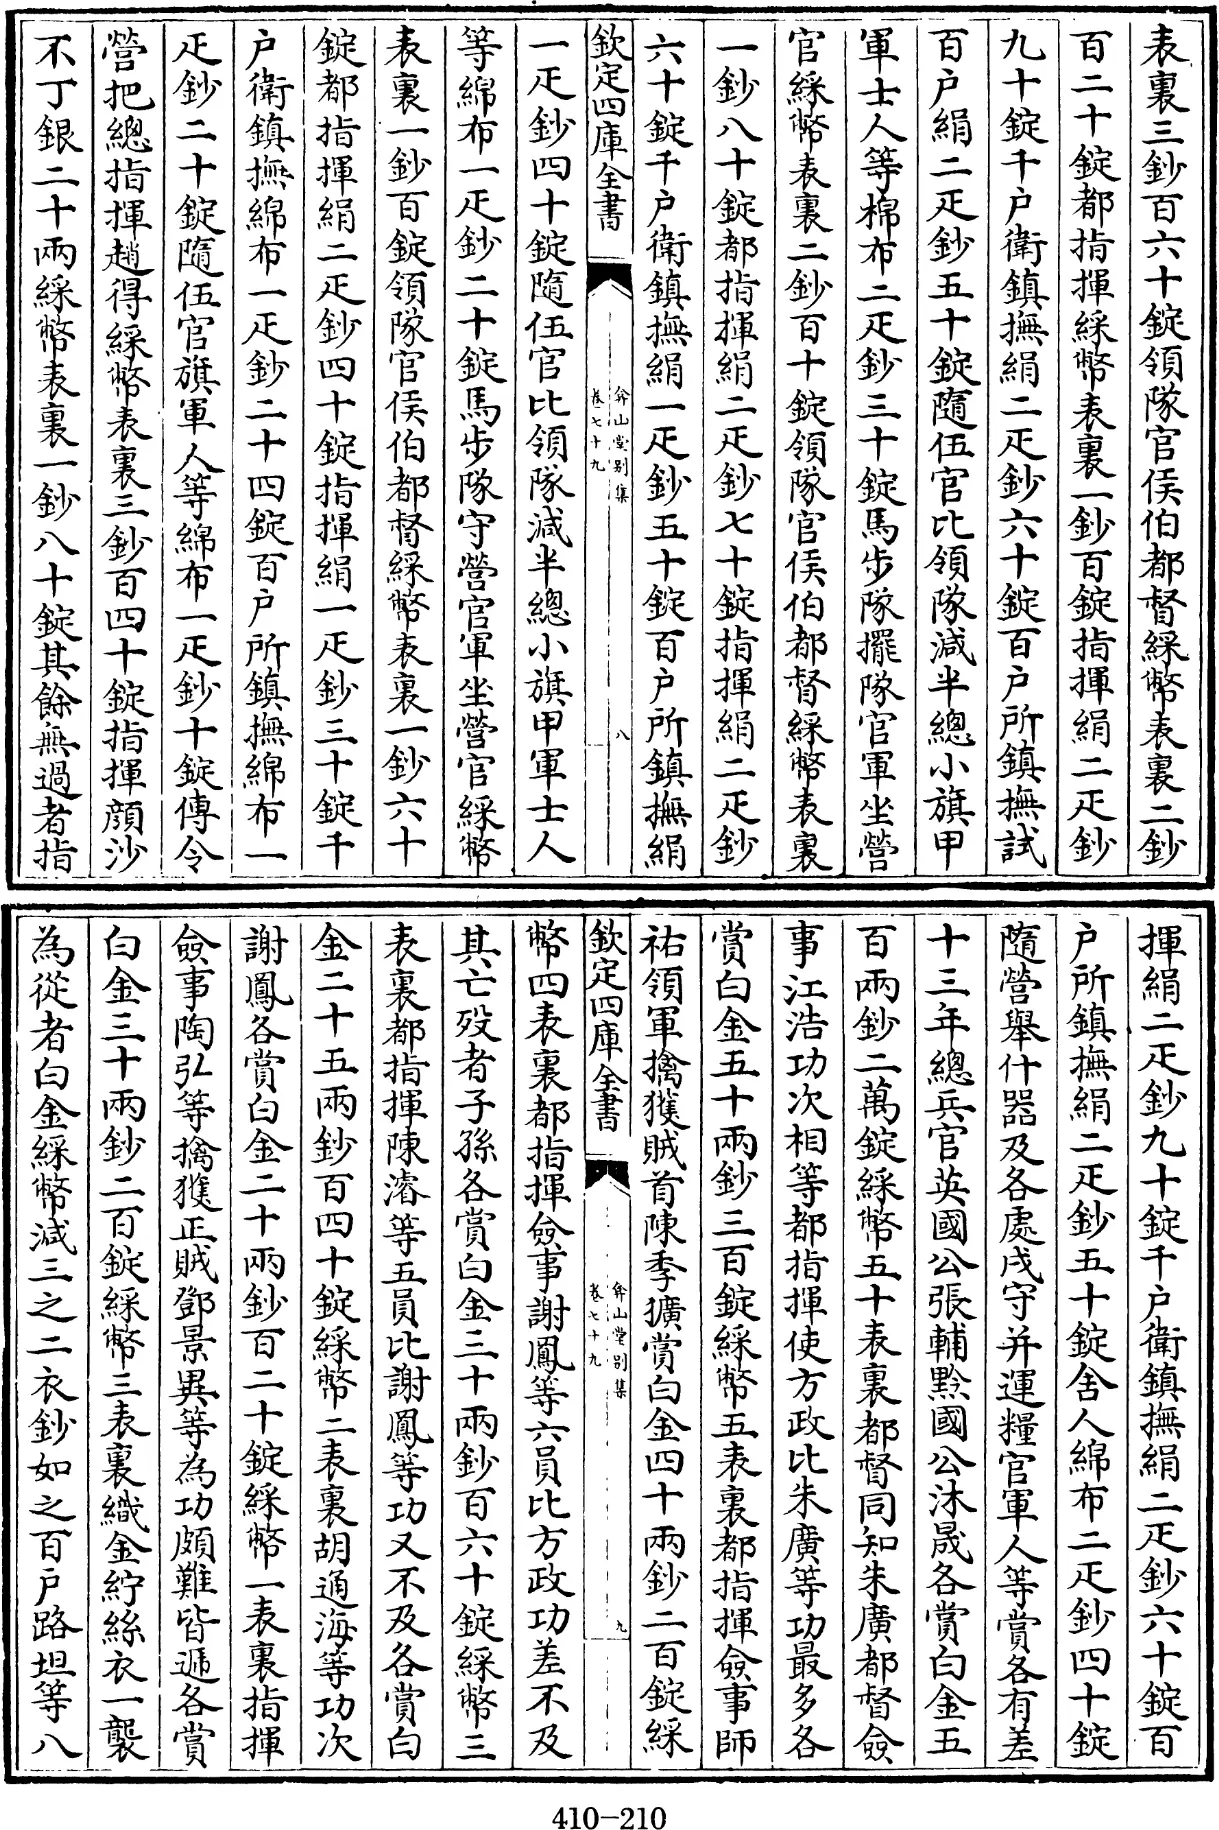 表裏三鈔百六十錠領隊官侯伯都督綵幣表裏二鈔
百二十錠都指揮綵幣表裏一鈔百錠指揮絹二疋鈔
九十錠千户衛鎮撫絹二疋鈔六十錠百户所鎮撫試
百户絹二疋鈔五十錠隨伍官比領隊減半總小旗甲
軍士人等棉布二疋鈔三十錠馬步隊擺隊官軍坐營
官綵幣表裏二鈔百十錠領隊官侯伯都督綵幣表裏
一鈔八十錠都指揮絹二疋鈔七十錠指揮絹二疋鈔
六十錠千户衛鎮撫絹一疋鈔五十錠百户所鎮撫絹
欽定四庫全書
弇山堂别集
卷七十九
八
一疋鈔四十錠隨伍官比領隊減半總小旗甲軍士人
等綿布一疋鈔二十錠馬步隊守營官軍坐營官綵幣
表裏一鈔百錠領隊官侯伯都督綵幣表裏一鈔六十
錠都指揮絹二疋鈔四十錠指揮絹一疋鈔三十錠千
户衛鎮撫綿布一疋鈔二十四錠百户所鎮撫綿布一
疋鈔二十錠隨伍官旗軍人等綿布一疋鈔十錠傳令
營把總指揮趙得綵幣表裏三鈔百四十錠指揮顔沙
不丁銀二十兩綵幣表裏一鈔八十錠其餘無過者指
揮絹二疋鈔九十錠千户衛鎮撫絹二疋鈔六十錠百
户所鎮撫絹二疋鈔五十錠舍人綿布二疋鈔四十錠
隨營舉什器及各處戍守并運糧官軍人等賞各有差
十三年總兵官英國公張輔黔國公沐晟各賞白金五
百兩鈔二萬錠綵幣五十表裏都督同知朱廣都督僉
事江浩功次相等都指揮使方政比朱廣等功最多各
賞白金五十兩鈔三百錠綵幣五表裏都指揮僉事師
祐領軍擒獲賊首陳季擴賞白金四十兩鈔二百錠綵
欽定四庫全書
弇山堂别集
卷七十九
九
幣四表裏都指揮僉事謝鳳等六員比方政功差不及
其亡殁者子孫各賞白金三十兩鈔百六十錠綵幣三
表裏都指揮陳濬等五員比謝鳳等功又不及各賞白
金二十五兩鈔百四十錠綵幣二表裏胡通海等功次
謝鳳各賞白金二十兩鈔百二十錠綵幣一表裏指揮
僉事陶弘等擒獲正賊鄧景異等為功頗難皆遞各賞
白金三十兩鈔二百錠綵幣三表裏織金紵絲衣一襲
為從者白金綵幣減三之二衣鈔如之百户路坦等八
410-210